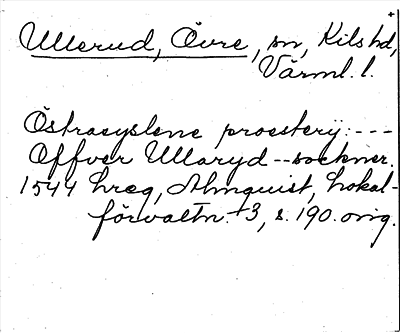 Ullerud, Övre, sn, Kils hd,
Värml. l.
Östraeyslene proestery: ---
Offver Ullaryd -- sockner.
1544 hreg, Almquist, Lokal-
förvaltn. 3, s. 190. orig.